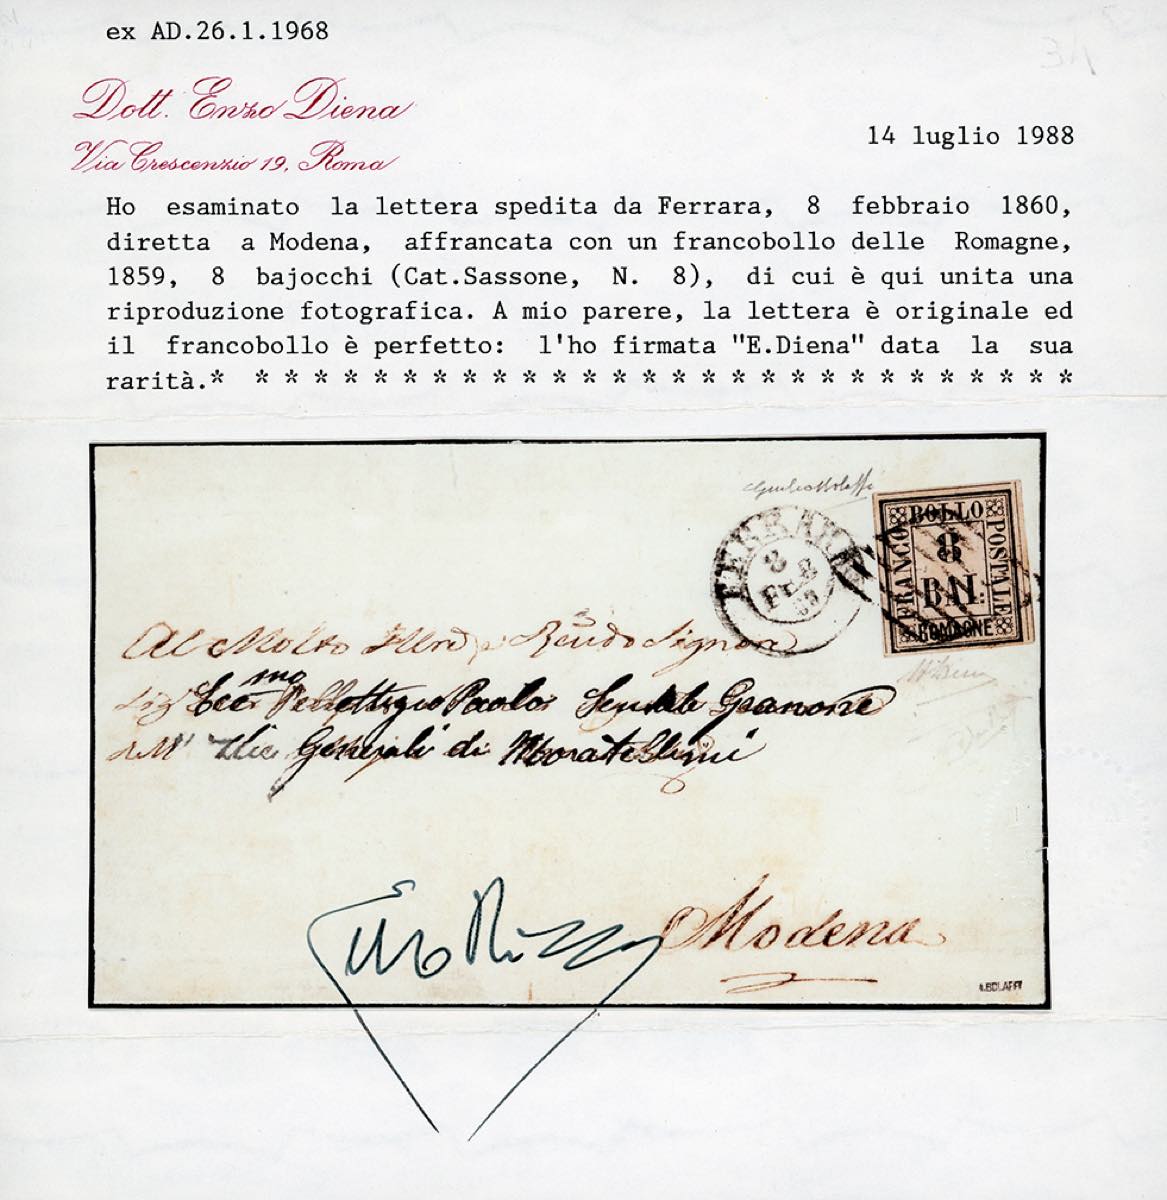 ex AD.26.1.1968
Dott. Enzo Diena
14 luglio 1988
Via Crescenzio 19, Roma
Ho esaminato la lettera spedita da Ferrara, 8 febbraio 1860,
diretta a Modena, affrancata con un francobollo delle Romagne,
1859, 8 bajocchi (Cat.Sassone, N. 8), di cui è qui unita una
riproduzione fotografica. A mio parere, la lettera è originale ed
il francobollo è perfetto: l'ho firmata "E.Diena" data la sua
rarità.* * * * * * * * * * * * * * * * * * * * * * * * * * * * *
FERRARA
8 FEB
BOLLO
FRANCO
POSTALE
8
BAI:
ROMAGNE
Al Molto
Signore
Paolo
Generali di
Modena
BOLAFFI